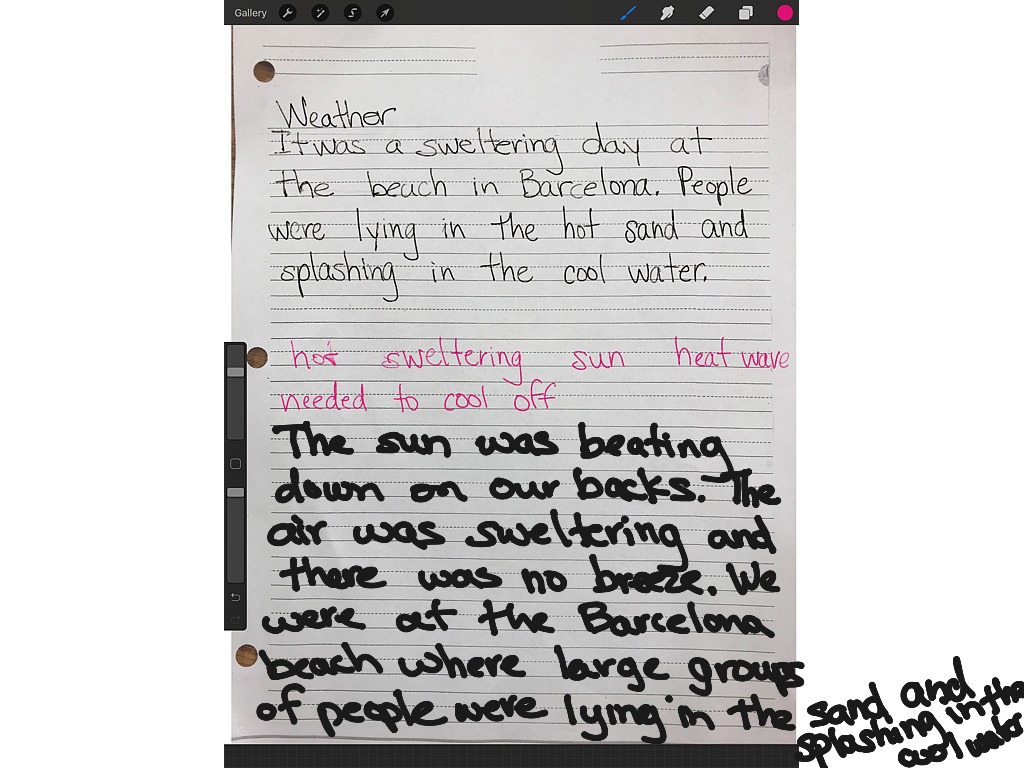 Gallery
Weather
It was a sweltering day at
the beach in Barcelona. People
were lying in the hot sand and
splashing in the cool water.
hot sweltering sun heat wave
needed to cool off
The sun was beating
down on our backs. The
air was sweltering and
there was no breeze. We
were at the Barcelona
beach where large groups
of people were lying in the
sand and
splashing in the
cool water